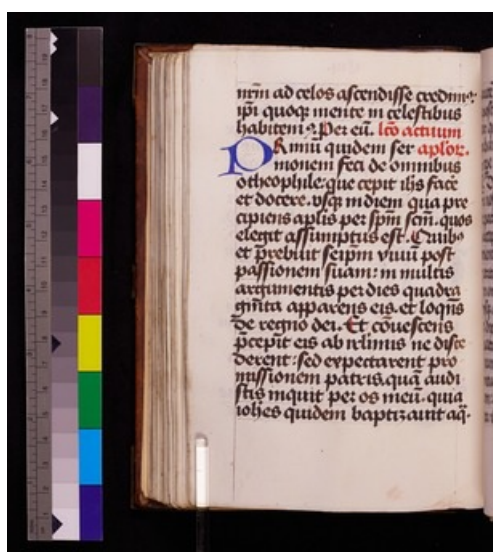 nr̄m ad celos ascendisse credimꝰ
ip̄i quoqꝫ mente in celestibus
habitemꝰ. Per eū. lc̄o actuum
PRimū quidem ser aplor̄.
monem feci de omnibus
otheophile: que cepit ih̄s fac̄e
et docere. vsqꝫ in diem qua pre
cipiens aplīs per sp̄m sc̄m. quos
elegit assumptus est. Quibꝰ
et prebuit seip̄m viuū post
passionem suam: in multis
argumentis per dies quadra
gīta apparens eis. et loqn̄s
de regno dei. Et cōuescens
p̄cepit eis ab ir̄limis ne disce
derent: sed expectarent pro
missionem patris. quā audi
stis inquit per os meū. quia
ioh̄es quidem baptizauit aq̄.